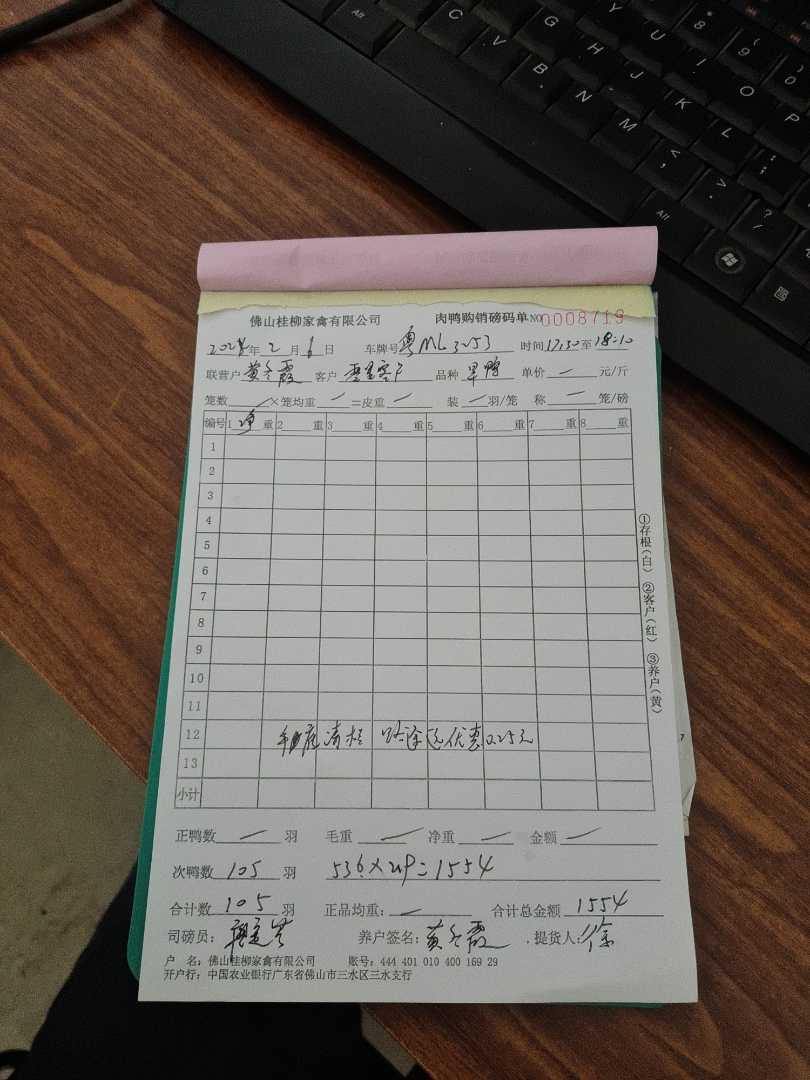 佛山桂柳家禽有限公司 肉鸭购销磅码单 NO 0008719
年 2 月 6 日 车牌号 粤ML3253 时间 17:30 至 18:10
联营户 黄冬霞 客户 品种 单价 — 元/斤
笼数 — ×笼均重 — =皮重 — 装 — 羽/笼 称 — 笼/磅
编号 1 净 重 2 重 3 重 4 重 5 重 6 重 7 重 8 重
1
2
3
4
5
6
7
8
9
10
11
12 年底清栏 路途远优惠0.25元
13
小计
正鸭数 — 羽 毛重 — 净重 — 金额 —
次鸭数 105 羽 536×2.9=1554
合计数 105 羽 正品均重: — 合计总金额 1554
司磅员: 养户签名: 黄冬霞 . 提货人: 徐
户 名: 佛山桂柳家禽有限公司 账号: 444 401 010 400 169 29
开户行: 中国农业银行广东省佛山市三水区三水支行
①存根(白) ②客户(红) ③养户(黄)
Alt C V B N M < , > . ? /
G H J K L : ;
Y U I O P
* 8 ( 9 ) 0
Alt